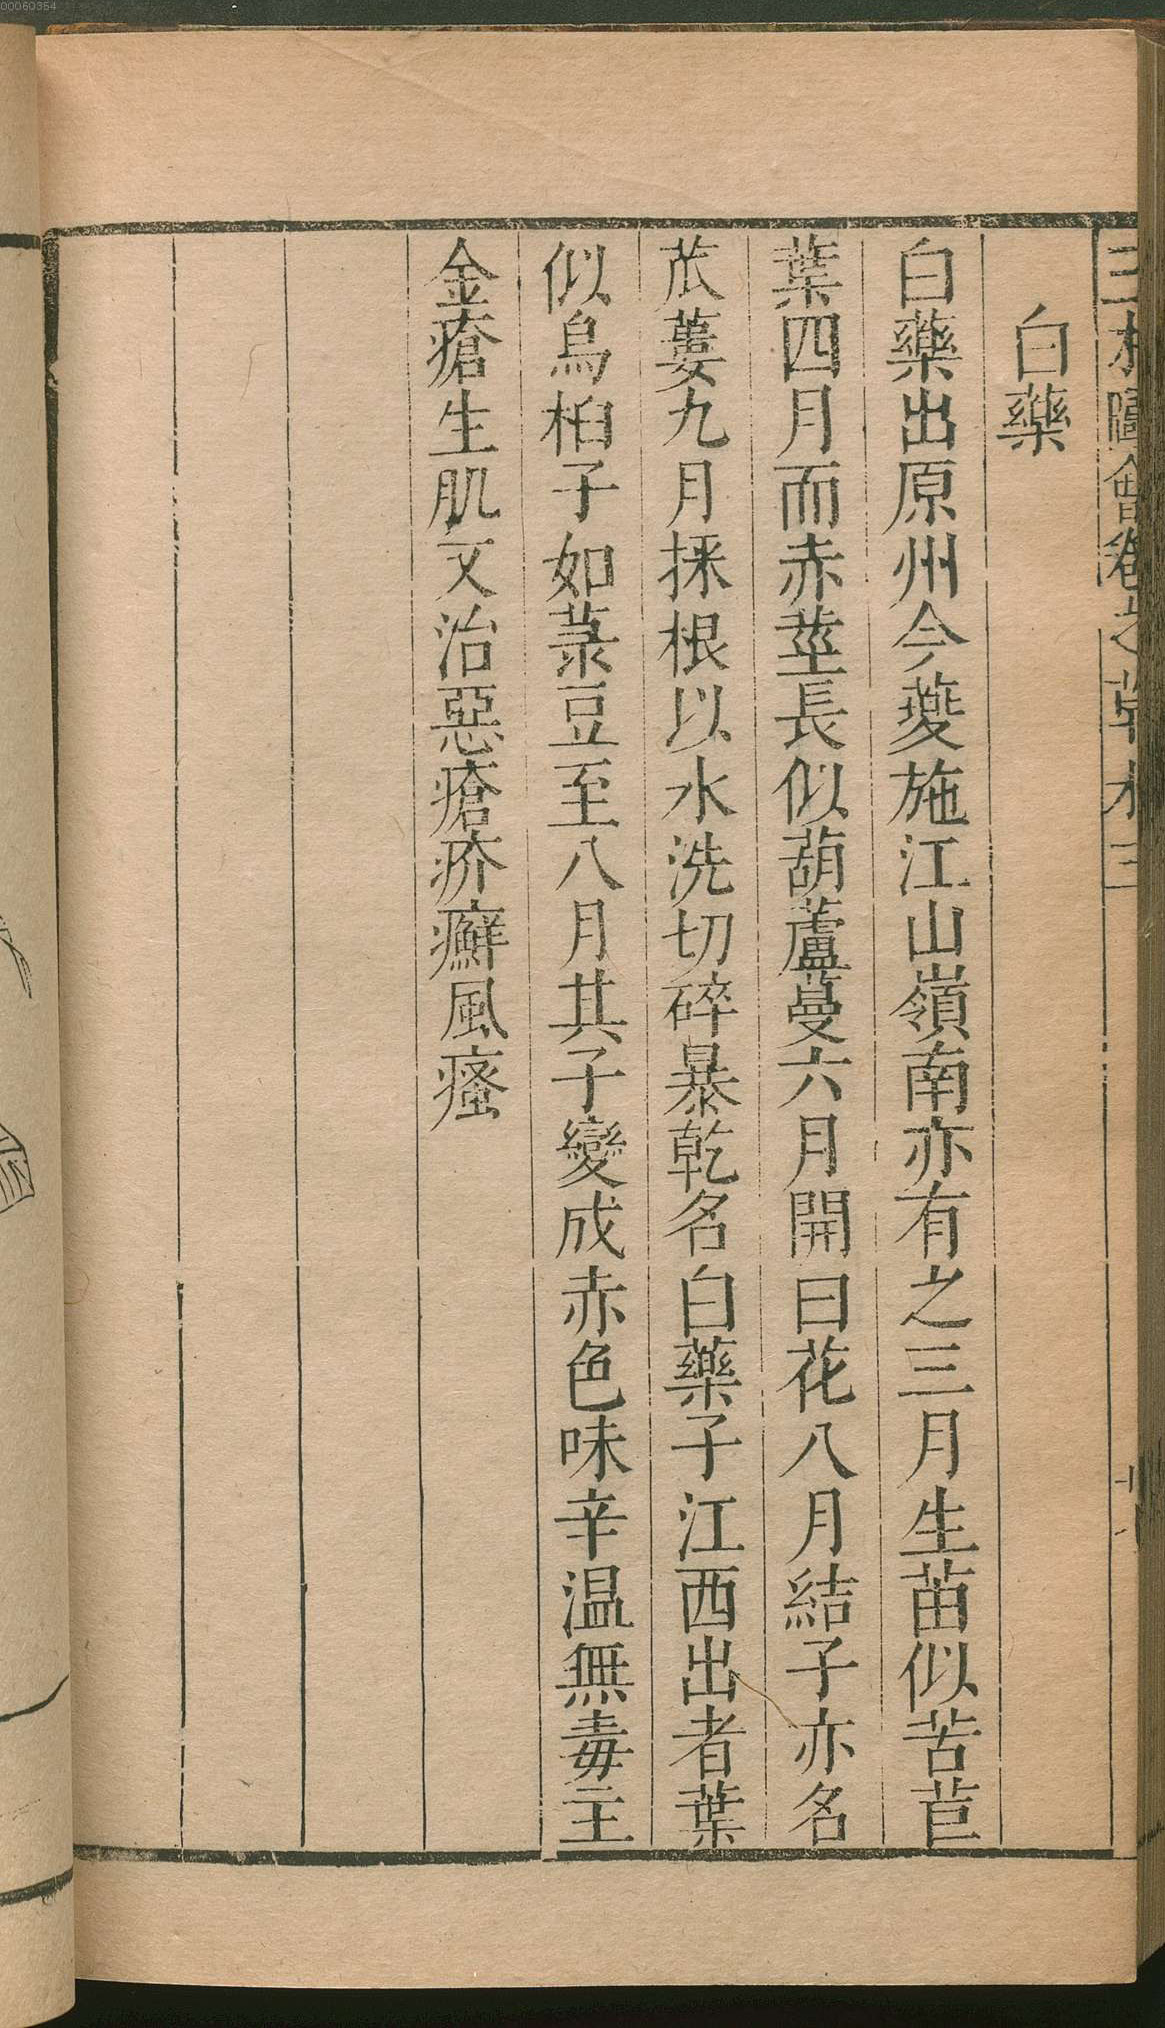 三才圖會卷之草木三
白藥
白藥出原州今夔施江山嶺南亦有之三月生苗似苦苣
葉四月而赤莖長似葫蘆蔓六月開白花八月結子亦名
苽蔞九月採根以水洗切碎暴乾名白藥子江西出者葉
似烏桕子如菉豆至八月其子變成赤色味辛温無毒主
金瘡生肌又治惡瘡疥癬風瘙
00060354